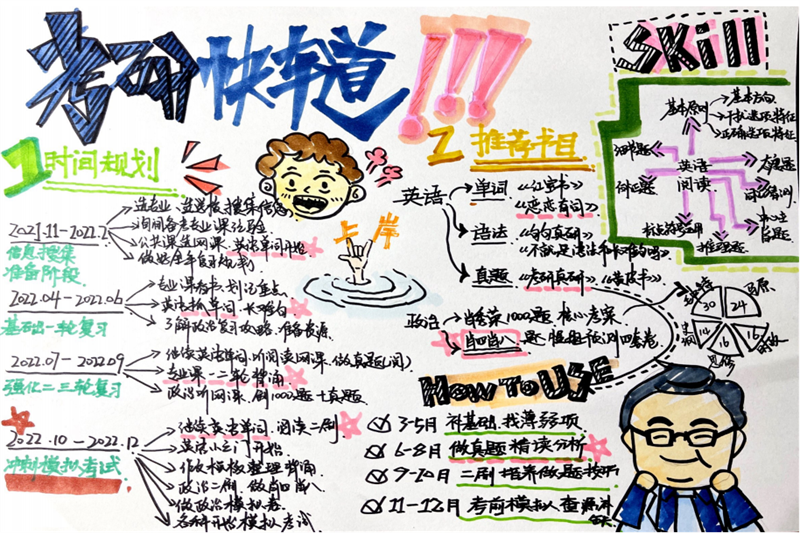 考研快车道!!!
Skill
1 时间规划
2021.11-2022.2
信息搜集
准备阶段
选专业、选学校、搜集信息
询问备考专业课经验
公共课选网课,英语单词开始
做好全年复习规划
2022.04-2022.06
基础一轮复习
专业课看书,划记重点
英语抓单词、长难句
了解政治复习攻略、准备资源
2022.07-2022.09
强化二三轮复习
继续英语单词、听阅读网课、做真题(阅)
专业课一二轮背诵
政治听网课、刷1000题+真题
2022.10-2022.12
冲刺模拟考试
继续英语单词、阅读二刷
英语小三门开始
作文模板整理背诵
政治二刷、做肖四肖八
做政治模拟卷
各科开始模拟考试
上岸
2 推荐书目
英语
单词 《红宝书》
《恋恋有词》
语法 《句句真研》
《不就是语法和长难句吗》
真题 《考研真相》《黄皮书》
政治
肖秀荣1000题,核心考案
肖四肖八
英语
阅读
基本原则
基本方向
干扰选项特征
正确选项特征
细节题
例证题
推理题
30
24
14
16
16
马原
史纲
How To USE
3-5月 补基础,找薄弱项
6-8月 做真题 精读分析
9-10月 二刷 培养做题技巧
11-12月 考前模拟